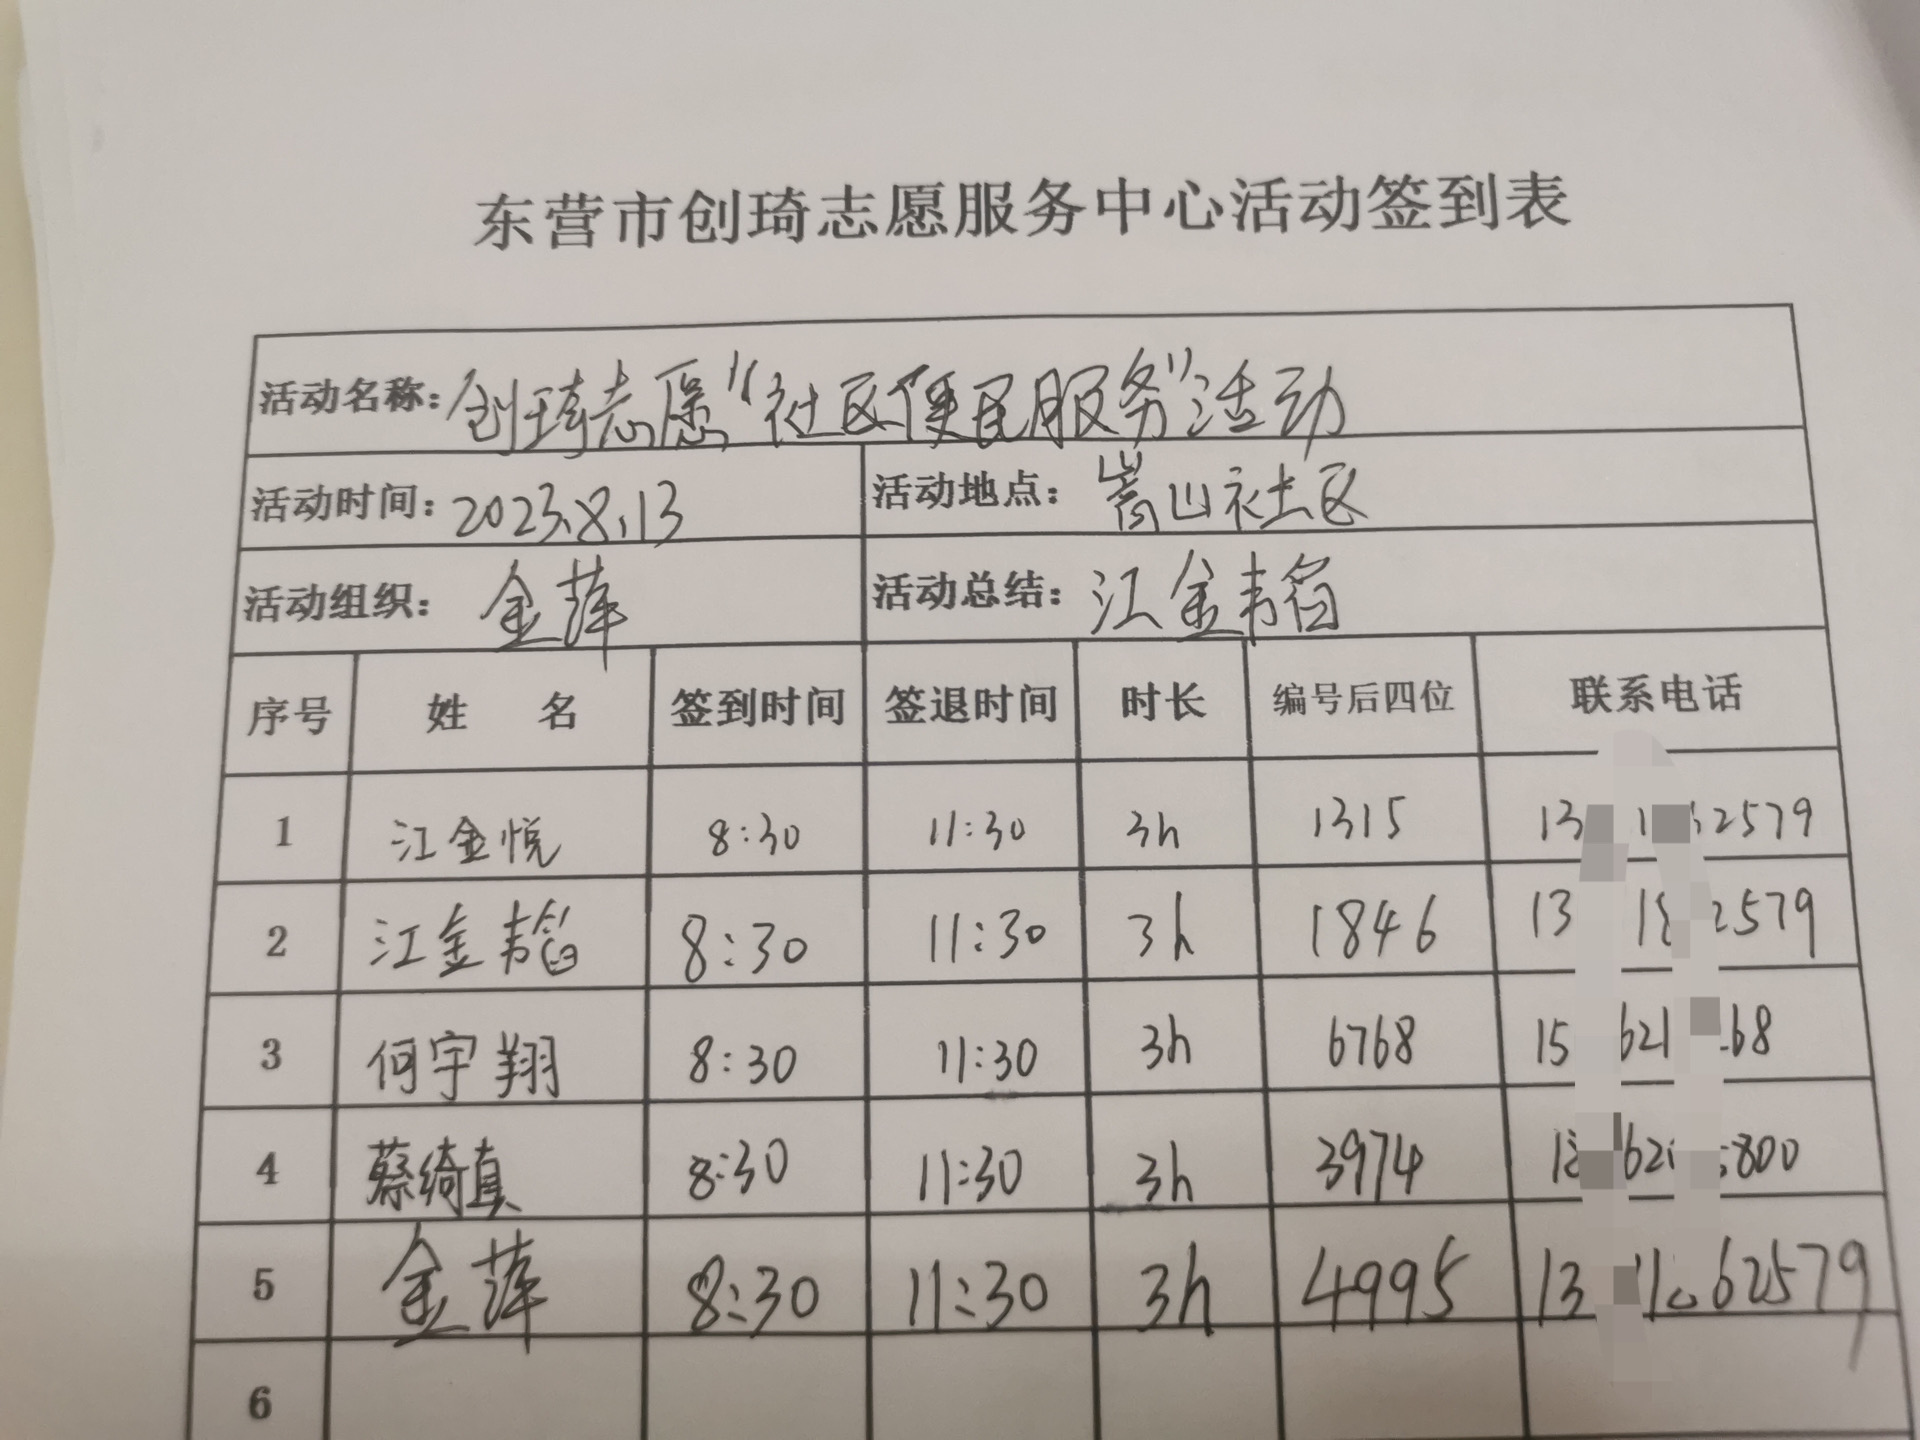 东营市创琦志愿服务中心活动签到表
活动名称：创琦志愿“社区便民服务”活动
活动时间：2023.8.13 活动地点：嵩山社区
活动组织：金萍 活动总结：江金韬
序号 姓名 签到时间 签退时间 时长 编号后四位 联系电话
1 江金悦 8:30 11:30 3h 1315 13 2579
2 江金韬 8:30 11:30 3h 1846 13 2579
3 何宇翔 8:30 11:30 3h 6768 15 621 68
4 蔡绮真 8:30 11:30 3h 3974 62 800
5 金萍 8:30 11:30 3h 4995 13 62579
6